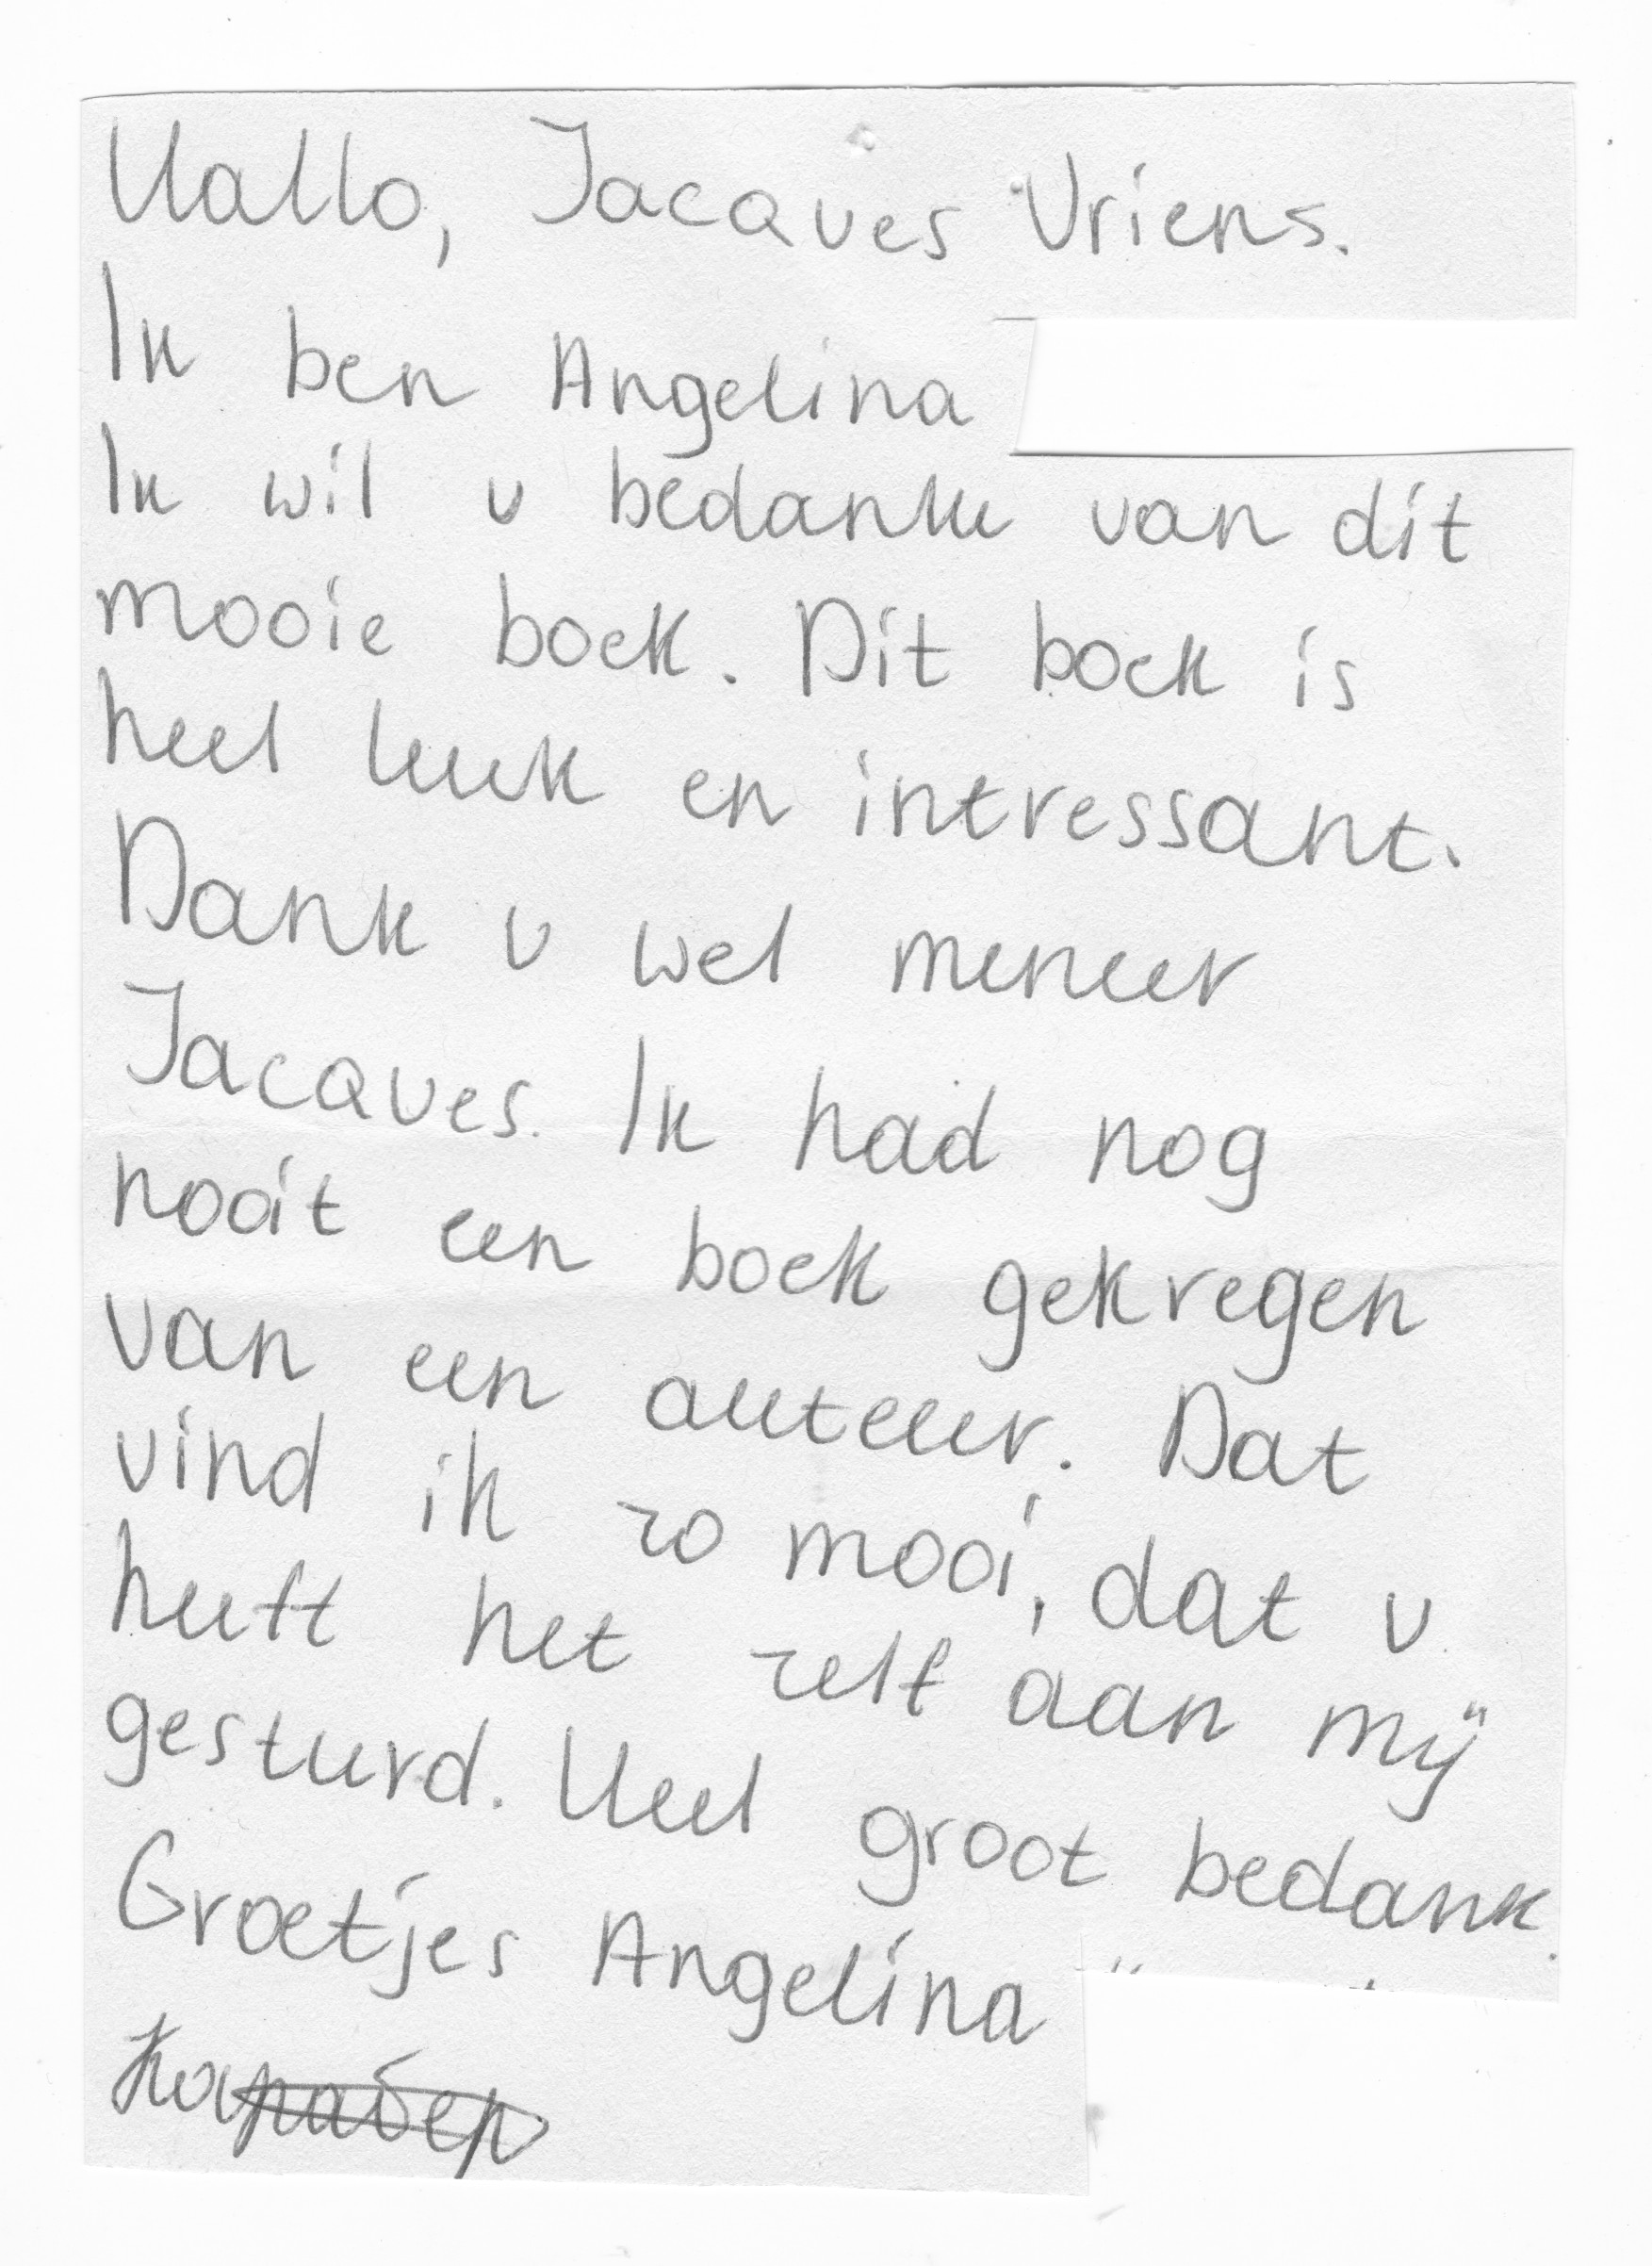 Hallo, Jacques Vriens.
Ik ben Angelina
Ik wil u bedanke van dit
mooie boek. Dit boek is
heel leuk en intressant.
Dank u wel meneer
Jacques. Ik had nog
nooit een boek gekregen
van een auteur. Dat
vind ik zo mooi, dat u
heeft het zelf aan mij
gesturd. Heel groot bedank.
Groetjes Angelina